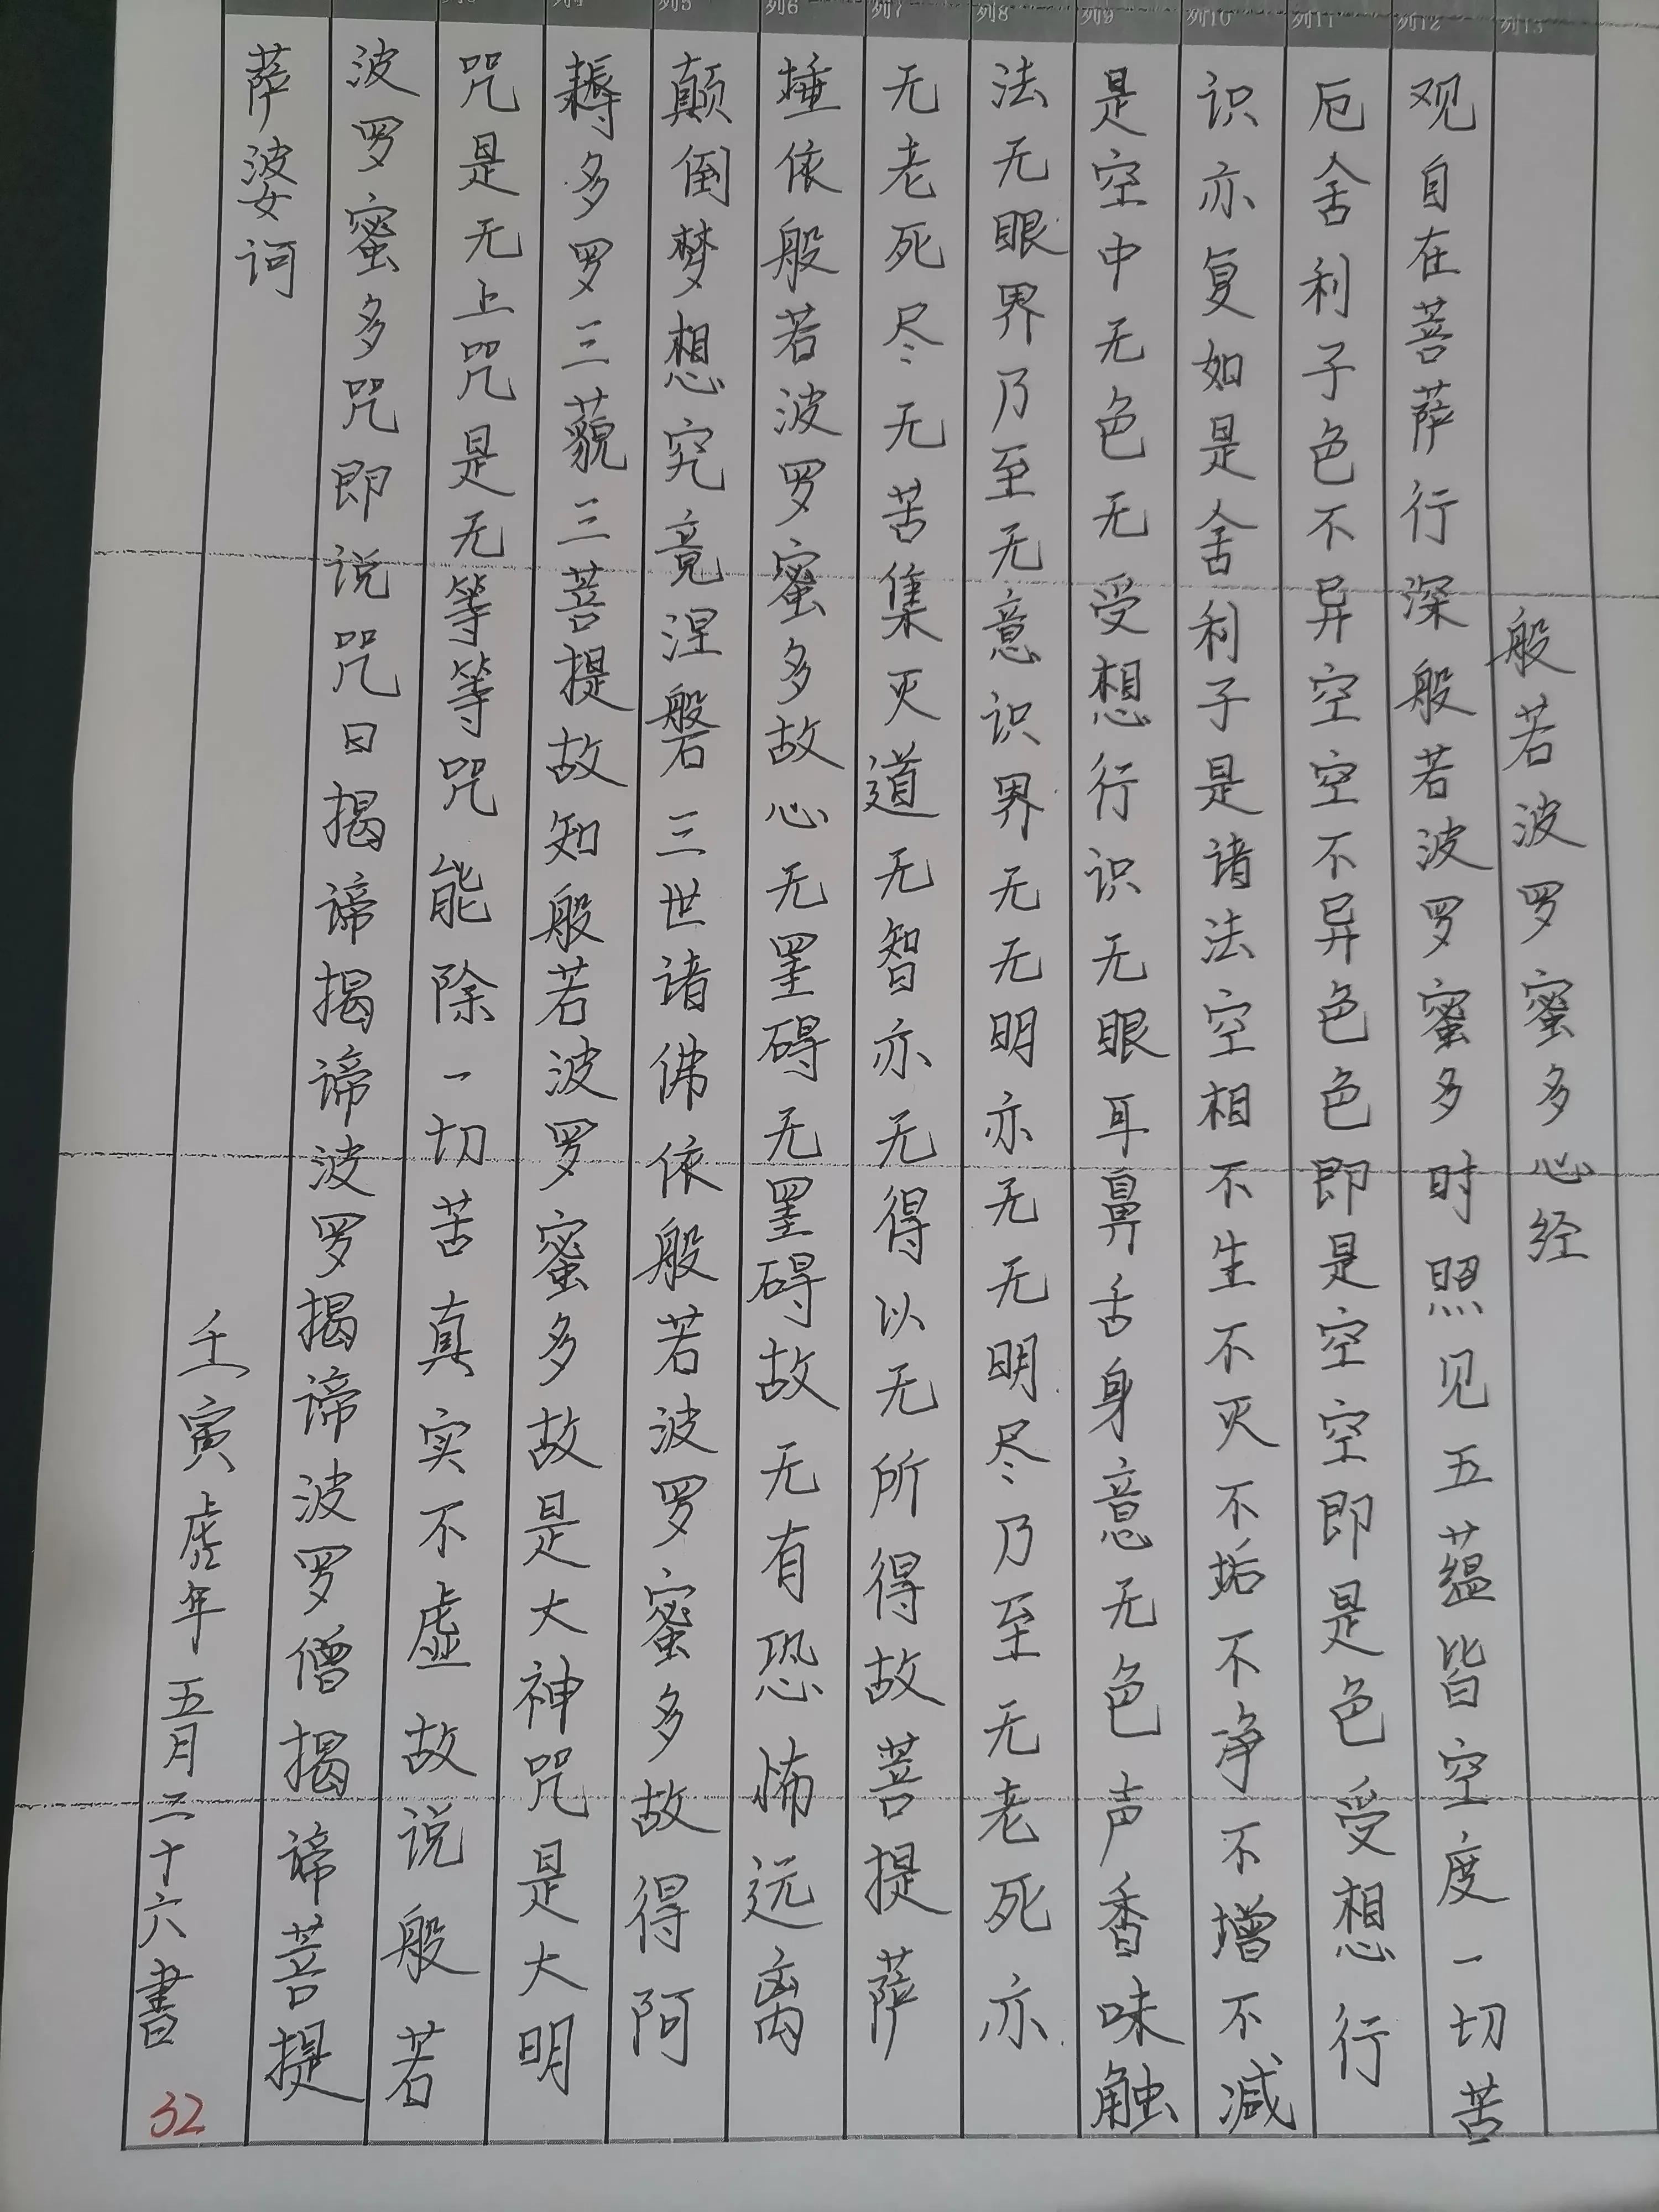 列5 列6 列7 列8 列9 列10 列11 列12 列13
般若波罗蜜多心经
观自在菩萨行深般若波罗蜜多时照见五蕴皆空度一切苦
厄舍利子色不异空空不异色色即是空空即是色受想行
识亦复如是舍利子是诸法空相不生不灭不垢不净不增不减
是空中无色无受想行识无眼耳鼻舌身意无色声香味触
法无眼界乃至无意识界无无明亦无无明尽乃至无老死亦
无老死尽无苦集灭道无智亦无得以无所得故菩提萨
捶依般若波罗蜜多故心无罣碍无罣碍故无有恐怖远离
颠倒梦想究竟涅磐三世诸佛依般若波罗蜜多故得阿
耨多罗三藐三菩提故知般若波罗蜜多故是大神咒是大明
咒是无上咒是无等等咒能除一切苦真实不虚故说般若
波罗蜜多咒即说咒曰揭谛揭谛波罗揭谛波罗僧揭谛菩提
萨婆诃
壬寅虎年五月二十六書
32